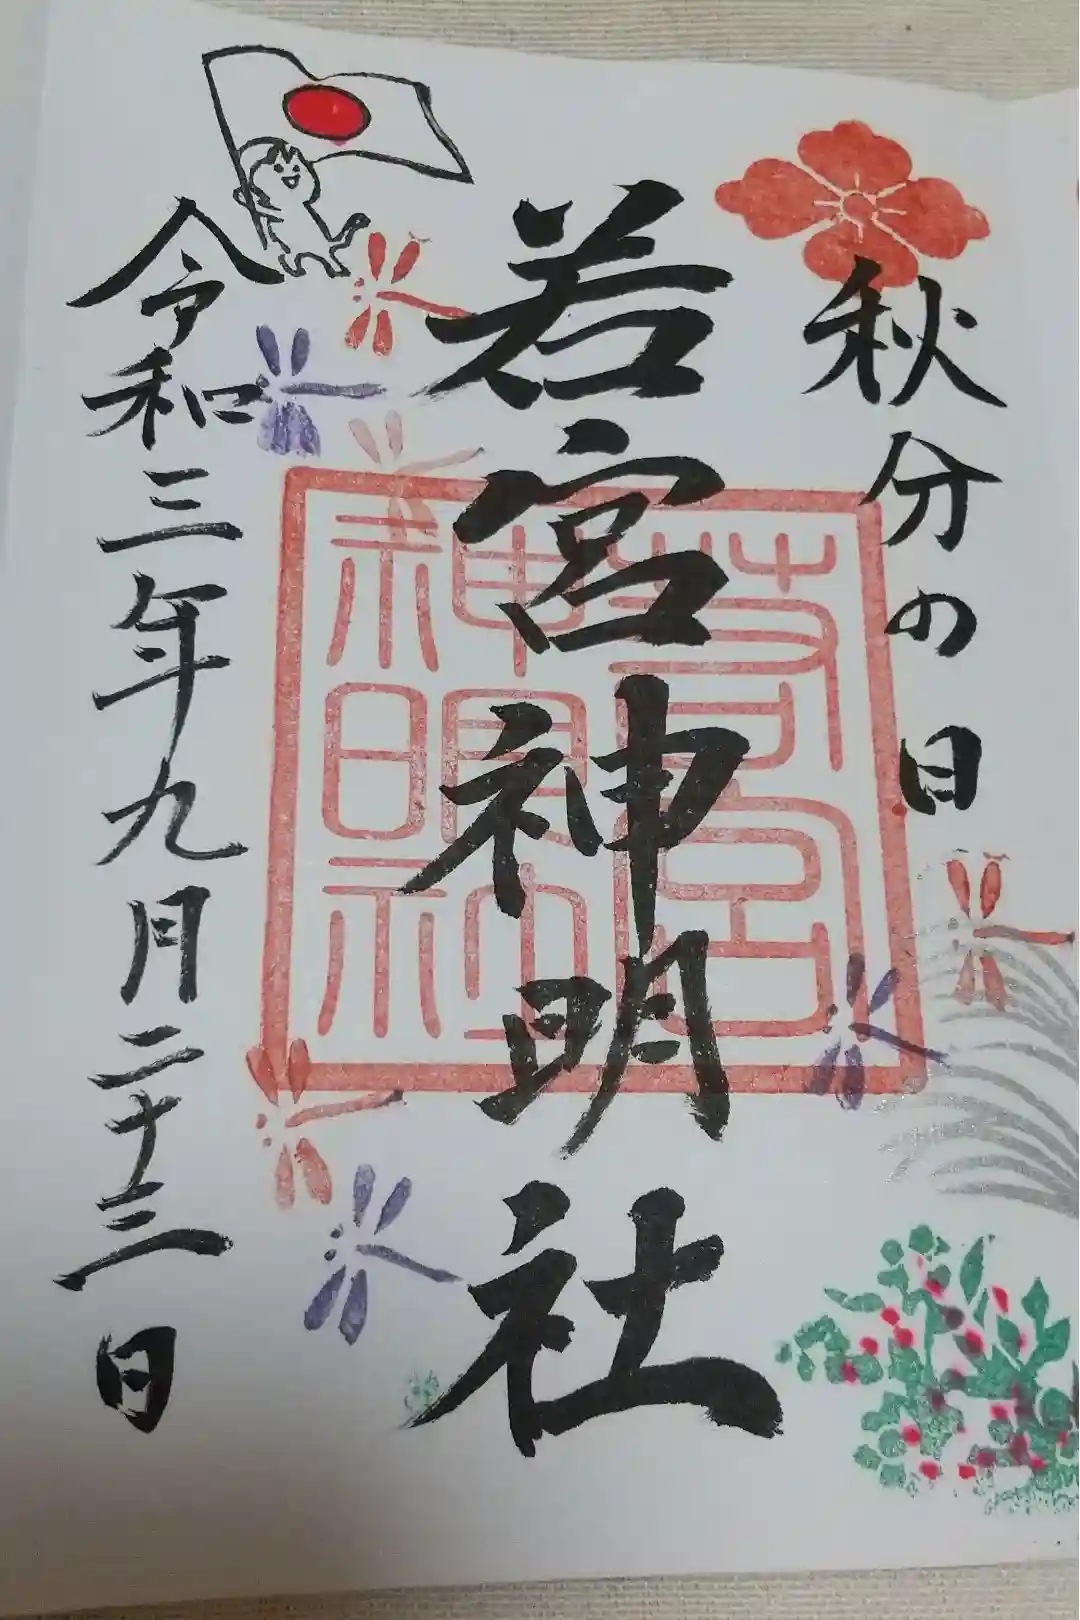 秋分の日
若宮神明社
若宮
神明社
令和三年九月二十三日